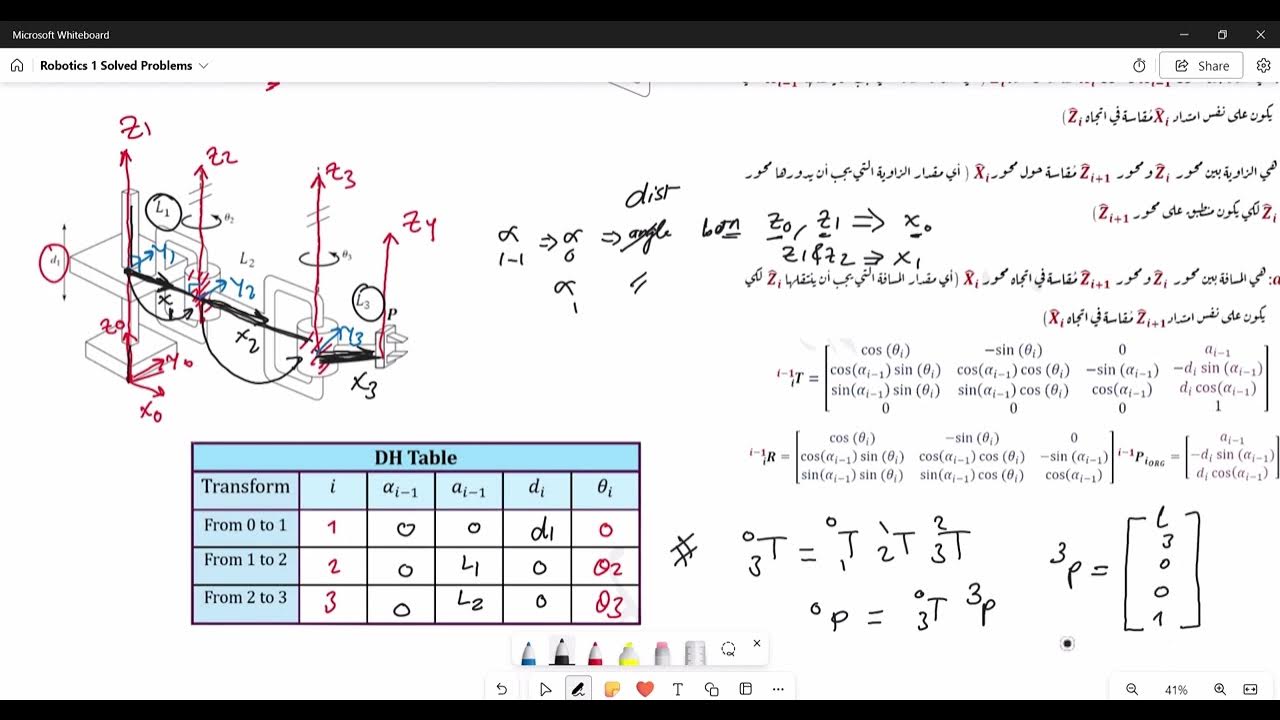 Microsoft Whiteboard
Robotics 1 Solved Problems
Share
يكون على نفس امتداد X̂i مُقاسة في اتجاه Ẑi)
هي الزاوية بين محور Ẑi و محور Ẑi+1 مُقاسة حول محور X̂i ( أي مقدار الزاوية التي يجب أن يدورها محور
Ẑi لكي يكون منطبق على محور Ẑi+1)
هي المسافة بين محور Ẑi و محور Ẑi+1 مُقاسة في اتجاه محور X̂i (أي مقدار المسافة التي يجب أن ينتقلها Ẑi لكي
يكون على نفس امتداد Ẑi+1 مُقاسة في اتجاه X̂i)
Z1
Z2
Z3
Z4
L1
θ2
Y1
L2
θ3
d1
Y2
L3
P
X1
Z0
X2
Y3
Y0
X3
X0
dist
α i-1 ⇒ α 0 ⇒ angle both Z0, Z1 ⇒ X0
Z1 & Z2 ⇒ X1
α 1 "
i-1 i T = [ cos (θi) −sin (θi) 0 ai−1
cos(αi−1) sin (θi) cos(αi−1) cos (θi) −sin (αi−1) −di sin (αi−1)
sin(αi−1) sin (θi) sin(αi−1) cos (θi) cos(αi−1) di cos(αi−1)
0 0 0 1 ]
i-1 i R = [ cos (θi) −sin (θi) 0
cos(αi−1) sin (θi) cos(αi−1) cos (θi) −sin (αi−1)
sin(αi−1) sin (θi) sin(αi−1) cos (θi) cos(αi−1) ]
i-1 P iORG = [ ai−1
−di sin (αi−1)
di cos(αi−1) ]
DH Table
Transform i αi−1 ai−1 di θi
From 0 to 1 1 0 0 d1 0
From 1 to 2 2 0 L1 0 θ2
From 2 to 3 3 0 L2 0 θ3
0 3 T = 0 1 T 1 2 T 2 3 T
0 P = 0 3 T 3 P
3 P = [ L3
0
0
1 ]
41%